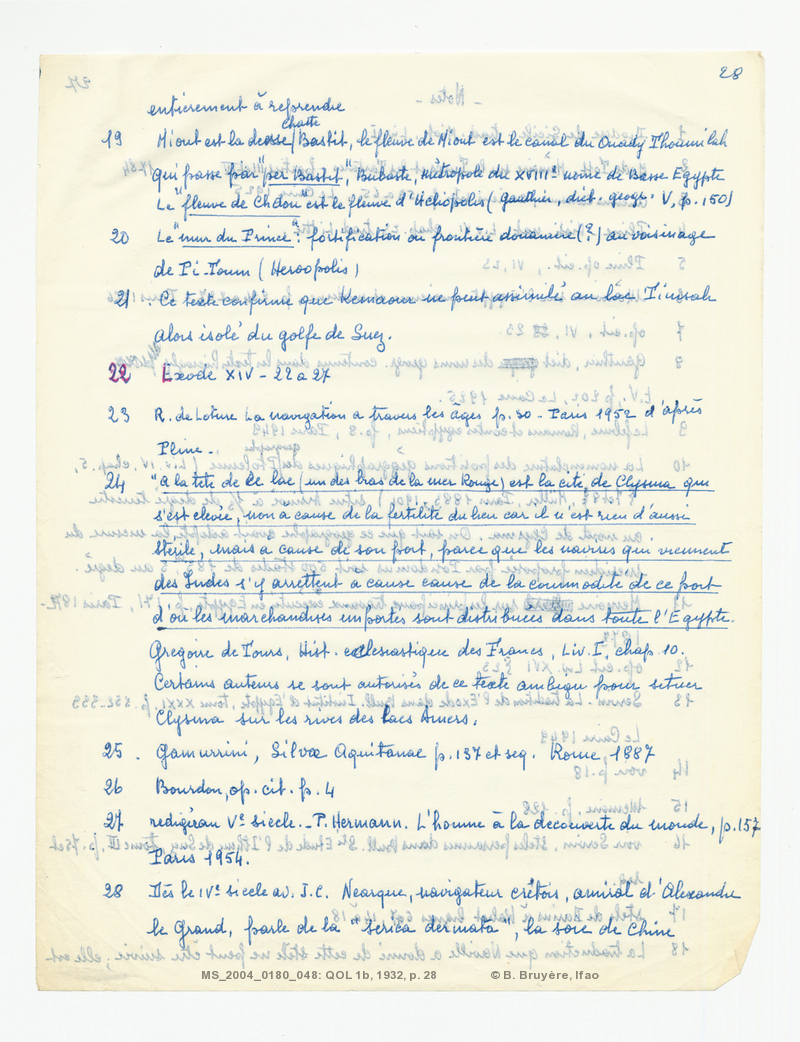 28
entièrement à reprendre
19 Miout est la déesse chatte/Bastit, le fleuve de Miout est le canal du Ouady Thoumilah
qui passe par "per Bastit", Bubaste, Métropole du XVIIIe nome de Basse Egypte
Le "fleuve de Chdou" est le fleuve d'Héliopolis (Gauthier, dict. geogr. V, p. 150)
20 Le "mur du Prince": fortification ou frontière douanière (?) au voisinage
de Pi-Toum (Heroopolis)
21 . Ce texte confirme que Kemaour ne peut assimilé au lac Timsah
alors isolé du golfe de Suez.
22 Exode XIV - 22 a 27
23 R. de Loture La navigation a travers les âges p. 30 - Paris 1952 d'après
Pline -
24 "A la tête de ce lac (un des bras de la mer Rouge) est la cité de Clysma qui
s'est elevée, non a cause de la fertilité du lieu car il n'est rien d'aussi
stérile, mais a cause de son port, parce que les navires qui viennent
des Indes s'y arrettent a cause cause de la commodité de ce port
d'où les marchandises importes sont distribuées dans toute l'Egypte.
Gregoire de Tours, Hist. ecclesiastique des Francs, Liv. I, chap 10.
Certains auteurs se sont autorisés de ce texte ambigu pour situer
Clysma sur les rives des lacs Amers.
25 . Gamurrini, Silvæ Aquitanae p. 137 et seq. Rome, 1887
26 Bourdon, op. cit. p. 4
27 redigé au Ve siècle. - P. Hermann. L'homme à la decouverte du monde, p. 157
Paris 1954.
28 Dès le IVe siecle av. J.C. Nearque, navigateur crétois, amiral d'Alexandre
le Grand, parle de la "serica dermata", la soie de Chine
MS_2004_0180_048: QOL 1b, 1932, p. 28 © B. Bruyère, Ifao